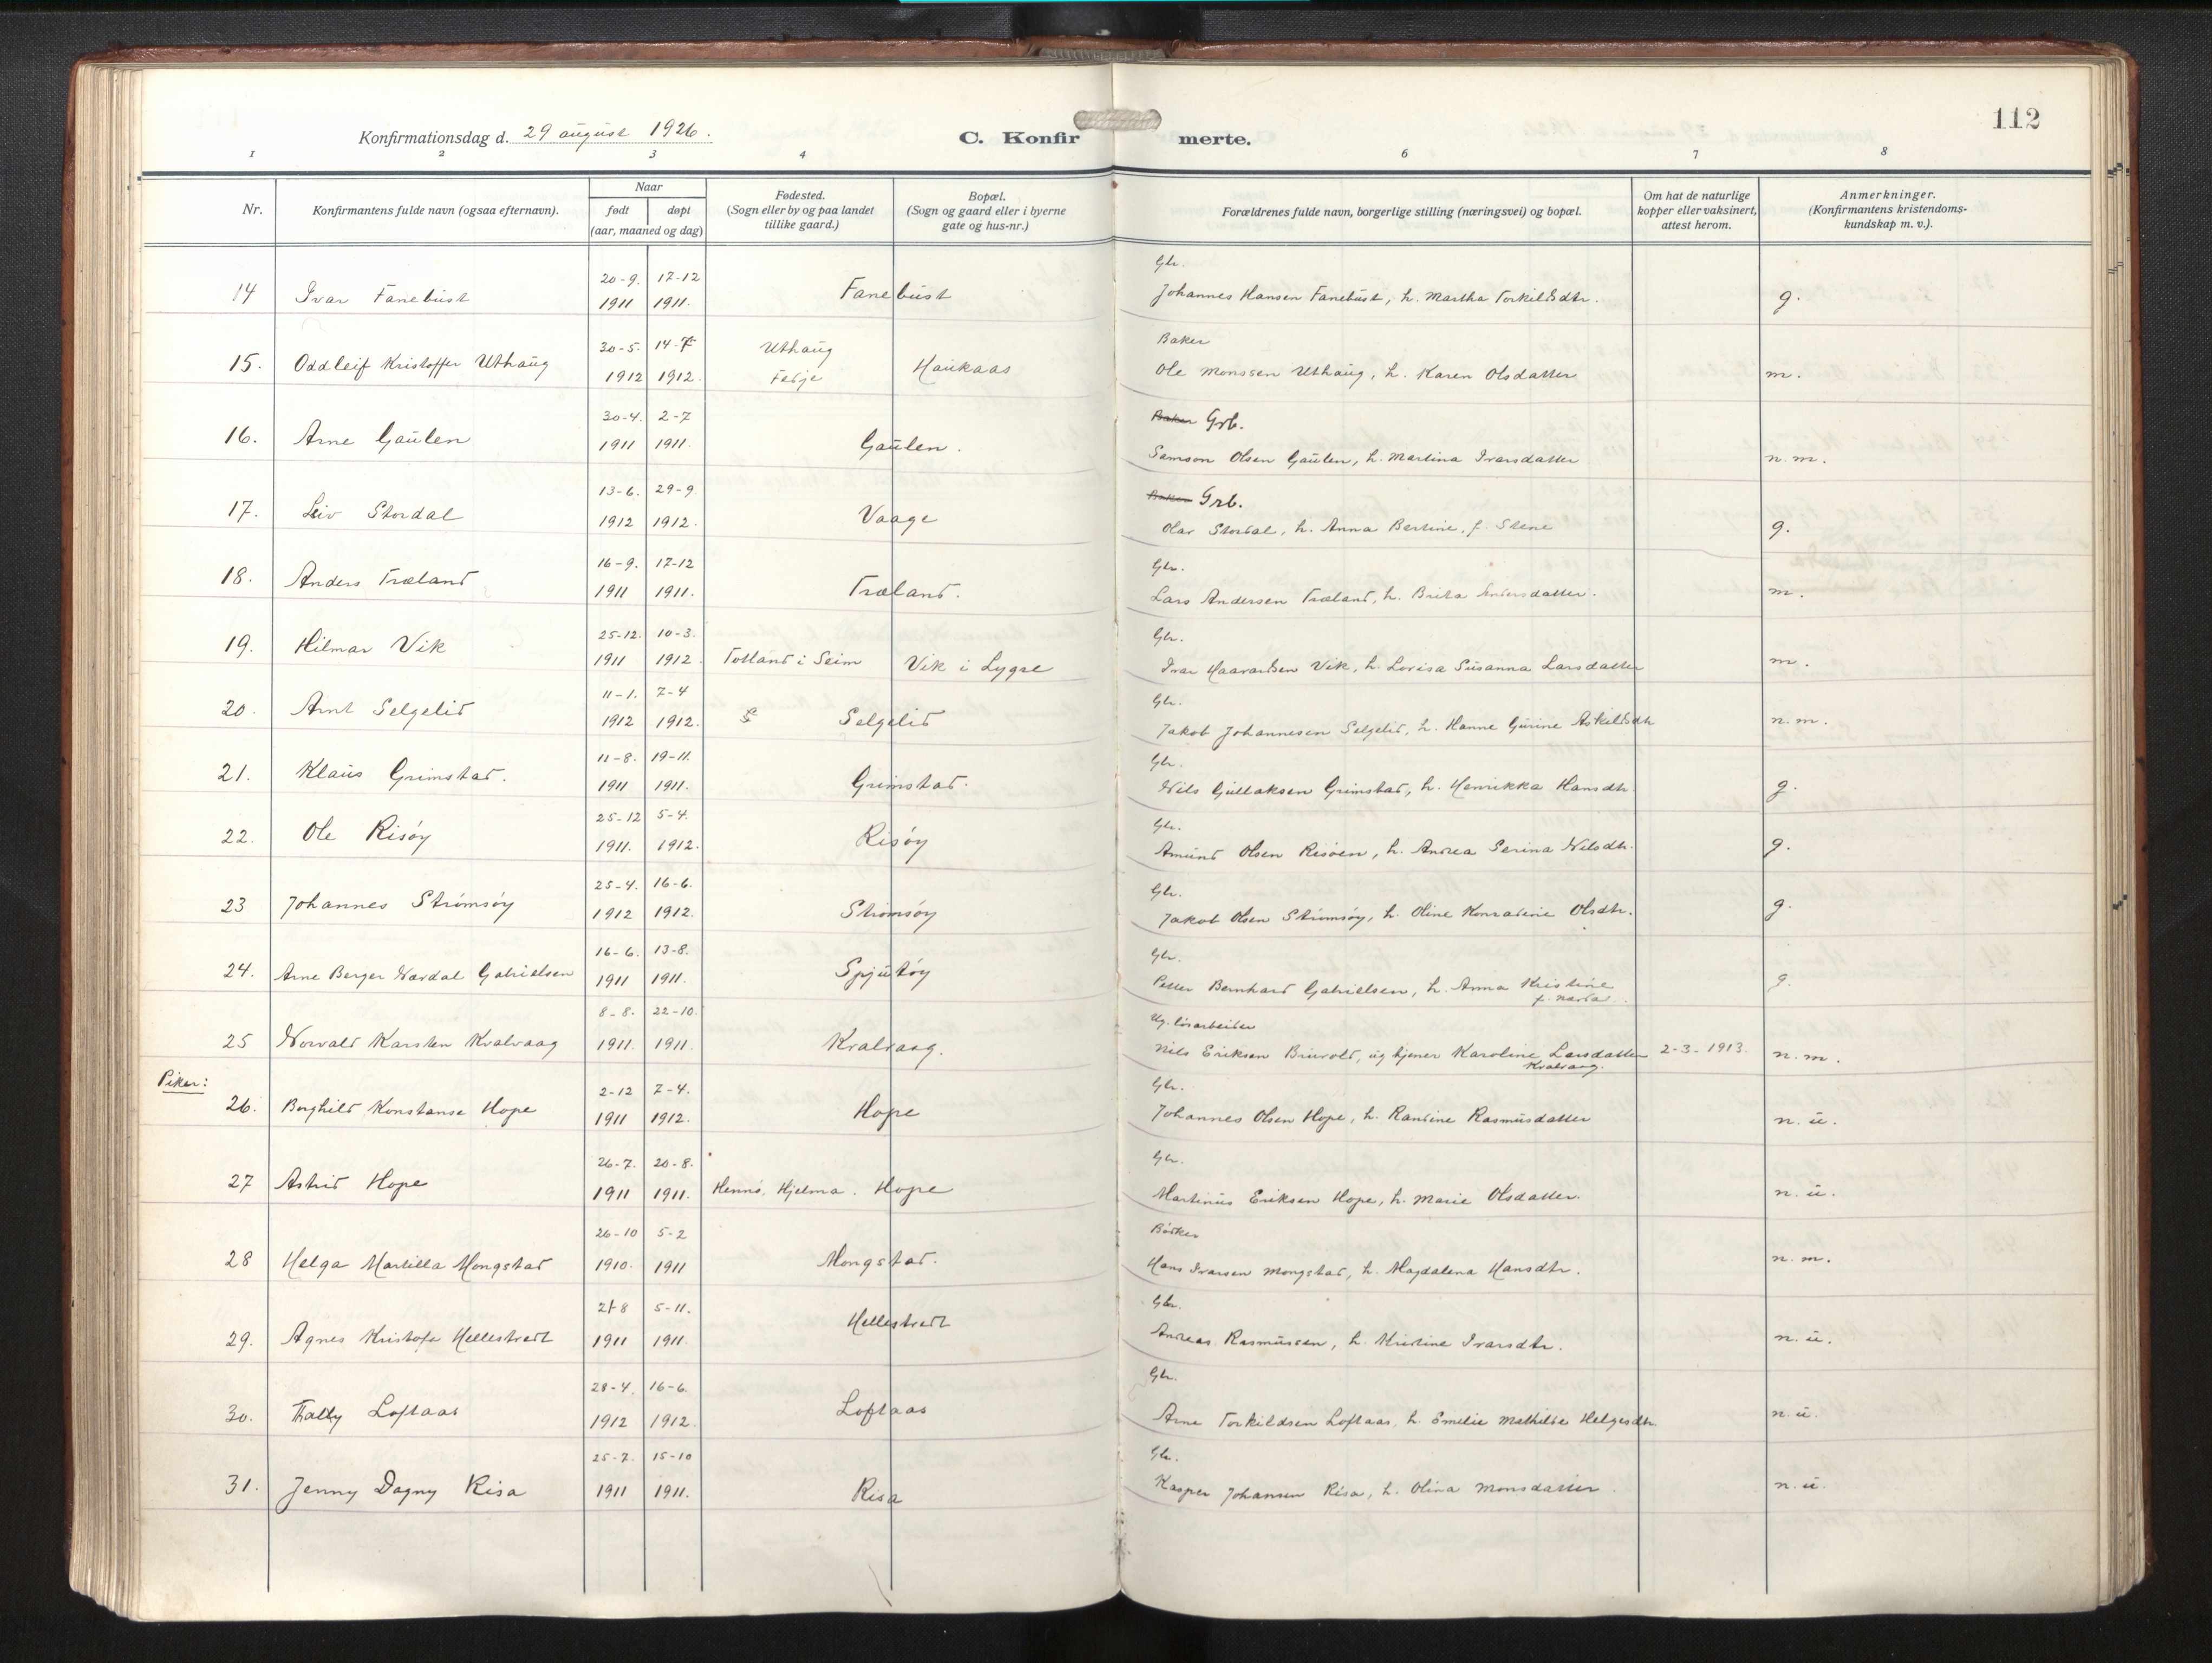 112
Konfirmationsdag d. 29 august 1926.
C. Konfirmerte.
1 2 3 4 6 7 8
Nr.
Konfirmantens fulde navn (ogsaa efternavn).
Naar
født døpt
(aar, maaned og dag)
Fødested.
(Sogn eller by og paa landet
tillike gaard.)
Bopæl.
(Sogn og gaard eller i byerne
gate og hus-nr.)
Forældrenes fulde navn, borgerlige stilling (næringsvei) og bopæl.
Om hat de naturlige
kopper eller vaksinert,
attest herom.
Anmerkninger.
(Konfirmantens kristendoms-
kundskap m. v.).
20-9. 17-12 Gbr.
14 Ivar Fanebust 1911 1911. Fanebust Johannes Hansen Fanebust, h. Martha Torkildsdtr. g.
30-5. 14-7 Uthaug Baker
15. Oddleif Kristoffer Uthaug 1912 1912. Fedje Haukaas Ole Monssen Uthaug, h. Karen Olsdatter m.
30-4. 2-7 Baker Grb.
16. Arne Gaulen 1911 1911. Gaulen. Samson Olsen Gaulen, h. Martina Ivarsdatter n. m.
13-6. 29-9 Baker Grb.
17. Leiv Stordal 1912 1912. Vaage Olav Stordal, h. Anna Bertine, f. Stene g.
16-9. 17-12 Gbr.
18. Anders Træland 1911 1911. Træland. Lars Andersen Træland, h. Brita Andersdatter. m.
25-12. 10-3. Gbr.
19. Hilmar Vik 1911 1912. Totland i Seim Vik i Lygre Ivar Haavardsen Vik, h. Lovisa Susanna Larsdatter m.
11-1. 7-4 Gbr.
20. Arnt Selgelid 1912 1912. S Selgelid Jakob Johannesen Selgelid, h. Hanne Gurine Askildsdtr n. m.
11-8. 19-11. Gbr.
21. Klaus Grimstad. 1911 1911. Grimstad. Nils Gullaksen Grimstad, h. Henrikka Hansdtr. g.
25-12 5-4. Gbr.
22. Ole Risøy 1911. 1912. Risøy Amund Olsen Risøen, h. Andrea Serina Nilsdtr. g.
25-4. 16-6. Gbr.
23 Johannes Strømsøy 1912 1912. Strømsøy Jakob Olsen Strømsøy, h. Oline Konradine Olsdtr. g.
16-6. 13-8. Gbr.
24. Arne Berger Nardal Gabrielsen 1911 1911. Spjutøy Petter Bernhard Gabrielsen, h. Anna Kristine g.
8-8. 22-10. Ug. løsarbeider
25 Norvald Karsten Kvalvaag 1911. 1911. Kvalvaag. Nils Eriksen Brurold, ug tjener Karoline Larsdatter 2-3-1913. n. m.
Kvalvaag.
Piker:
2-12 7-4. Gbr.
26. Borghild Konstanse Hope 1911 1912. Hope Johannes Olsen Hope, h. Randine Rasmusdatter n. u.
26-7. 20-8. Gbr.
27 Astrid Hope 1911 1911. Hennø, Hjelma. Hope Martinus Eriksen Hope, h. Marie Olsdatter. n. u.
26-10 5-2 Bødker
28 Helga Martilla Mongstad 1910. 1911 Mongstad. Hans Ivarsen Mongstad, h. Magdalena Hansdtr. n. m.
21-8 5-11. Gbr.
29. Agnes Kristofa Hellestvedt 1911 1911. Hellestvedt Andreas Rasmussen, h. Kristine Ivarsdtr. n. u.
28-4. 16-6. Gbr.
30. Thally Loftaas 1912 1912. Loftaas Arne Torkildsen Loftaas, h. Emelie Mathilde Helgesdtr. n. u.
25-7. 15-10 Gbr.
31. Jenny Dagny Risa 1911 1911. Risa Kasper Johansen Risa, h. Olina Monsdatter. n. u.